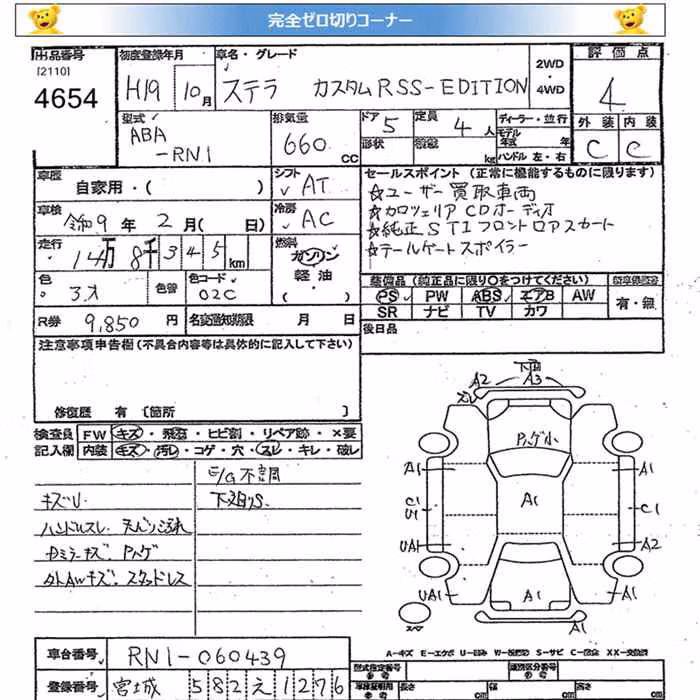 完全ゼロ切りコーナー
出品番号 初度登録年月 車名・グレード 2WD・4WD 評価点
[2110]
4654 H19 10月 ステラ カスタムRSS-EDITION 4
型式 排気量 ドア 5 定員 4人 ディーラー・並行 外装 内装
ABA 660cc 形状 積載 kg モデル年式 年 C C
-RN1 ハンドル 左・右
車歴 シフト セールスポイント (正常に機能するものに限ります)
自家用・( ) AT ☆ユーザー買取車両
車検 冷房 ☆カロツェリアCDオーディオ
令和9年2月( 日) AC ☆純正STIフロントロアスカート
走行 燃料 ☆テールゲートスポイラー
14万8千345km ガソリン
軽油
( )
色 色替 色コード 装備品 (純正品に限り○をつけてください)
3オ 02C PS PW ABS エアB AW 有・無
SR ナビ TV カワ
R券 9,850円 名変通知期限 月 日 後日品
注意事項申告欄(不具合内容等は具体的に記入して下さい)
修復歴 有 [箇所 ]
検査員 FW キズ・飛石・ヒビ割・リペア跡・×要
記入欄 内装 キズ・汚レ・コゲ・穴・スレ・キレ・破レ
E/G不調
キズU 下廻りS
ハンドルスレ 天バリ汚れ
Dミラーキズ Pハゲ
タトAWキズ スタッドレス
下廻
A2 A3
スレ
Pハゲ小
A1 A1
A1
C1
U1 C1
UA1 A2
UA1 A1 A1
スペア A1
A-キズ E-エクボ U-凹み W-板補跡 S-サビ C-腐蝕 XX-交換済
車台番号 RN1-060439
登録番号 宮城 582 え 1276
型式指定番号 参考 類別区分番号 参考
長さ cm 幅 cm 高さ cm